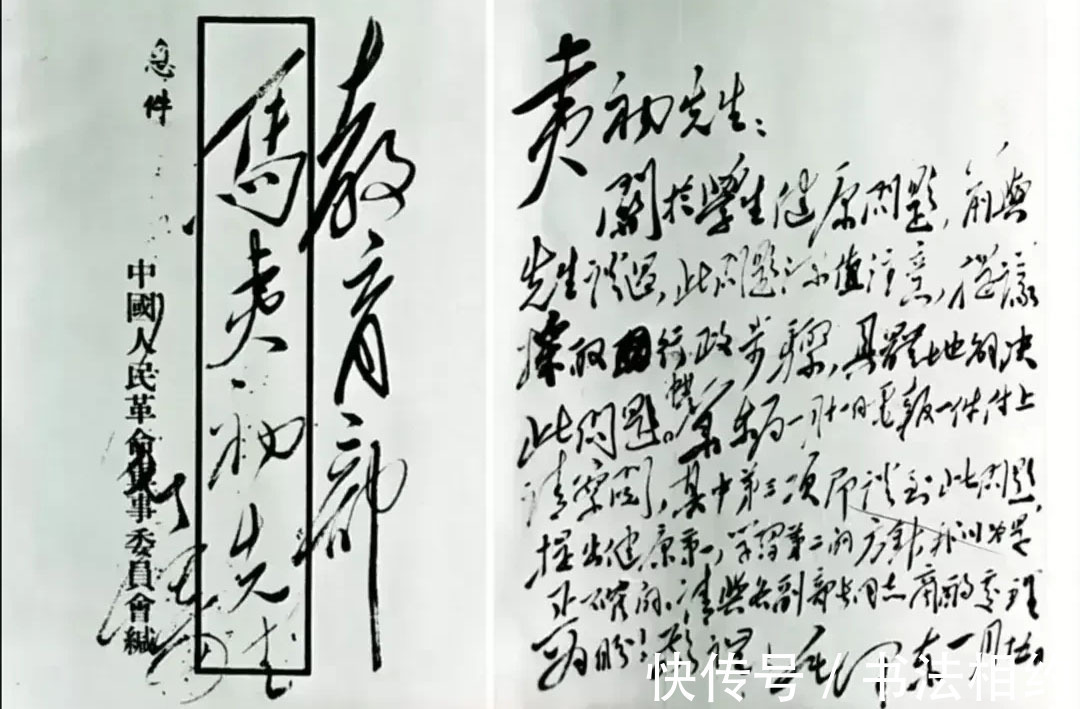 急件
教育部
馬夷初先生
中國人民革命軍事委員會緘
毛
夷初先生：
關於學生健康问題，前與
先生談過，此问題深值注意，提議
採取行政步驟，具體地解决
此问題。華東局一月十一日電報一件付上
請察閱，其中第三項即談到此问題，
提出健康第一，學習第二的方針，我以为是
正確的。請與各副部長同志商酌處理
为盼！毛澤東 一月
快传号 / 书法相约